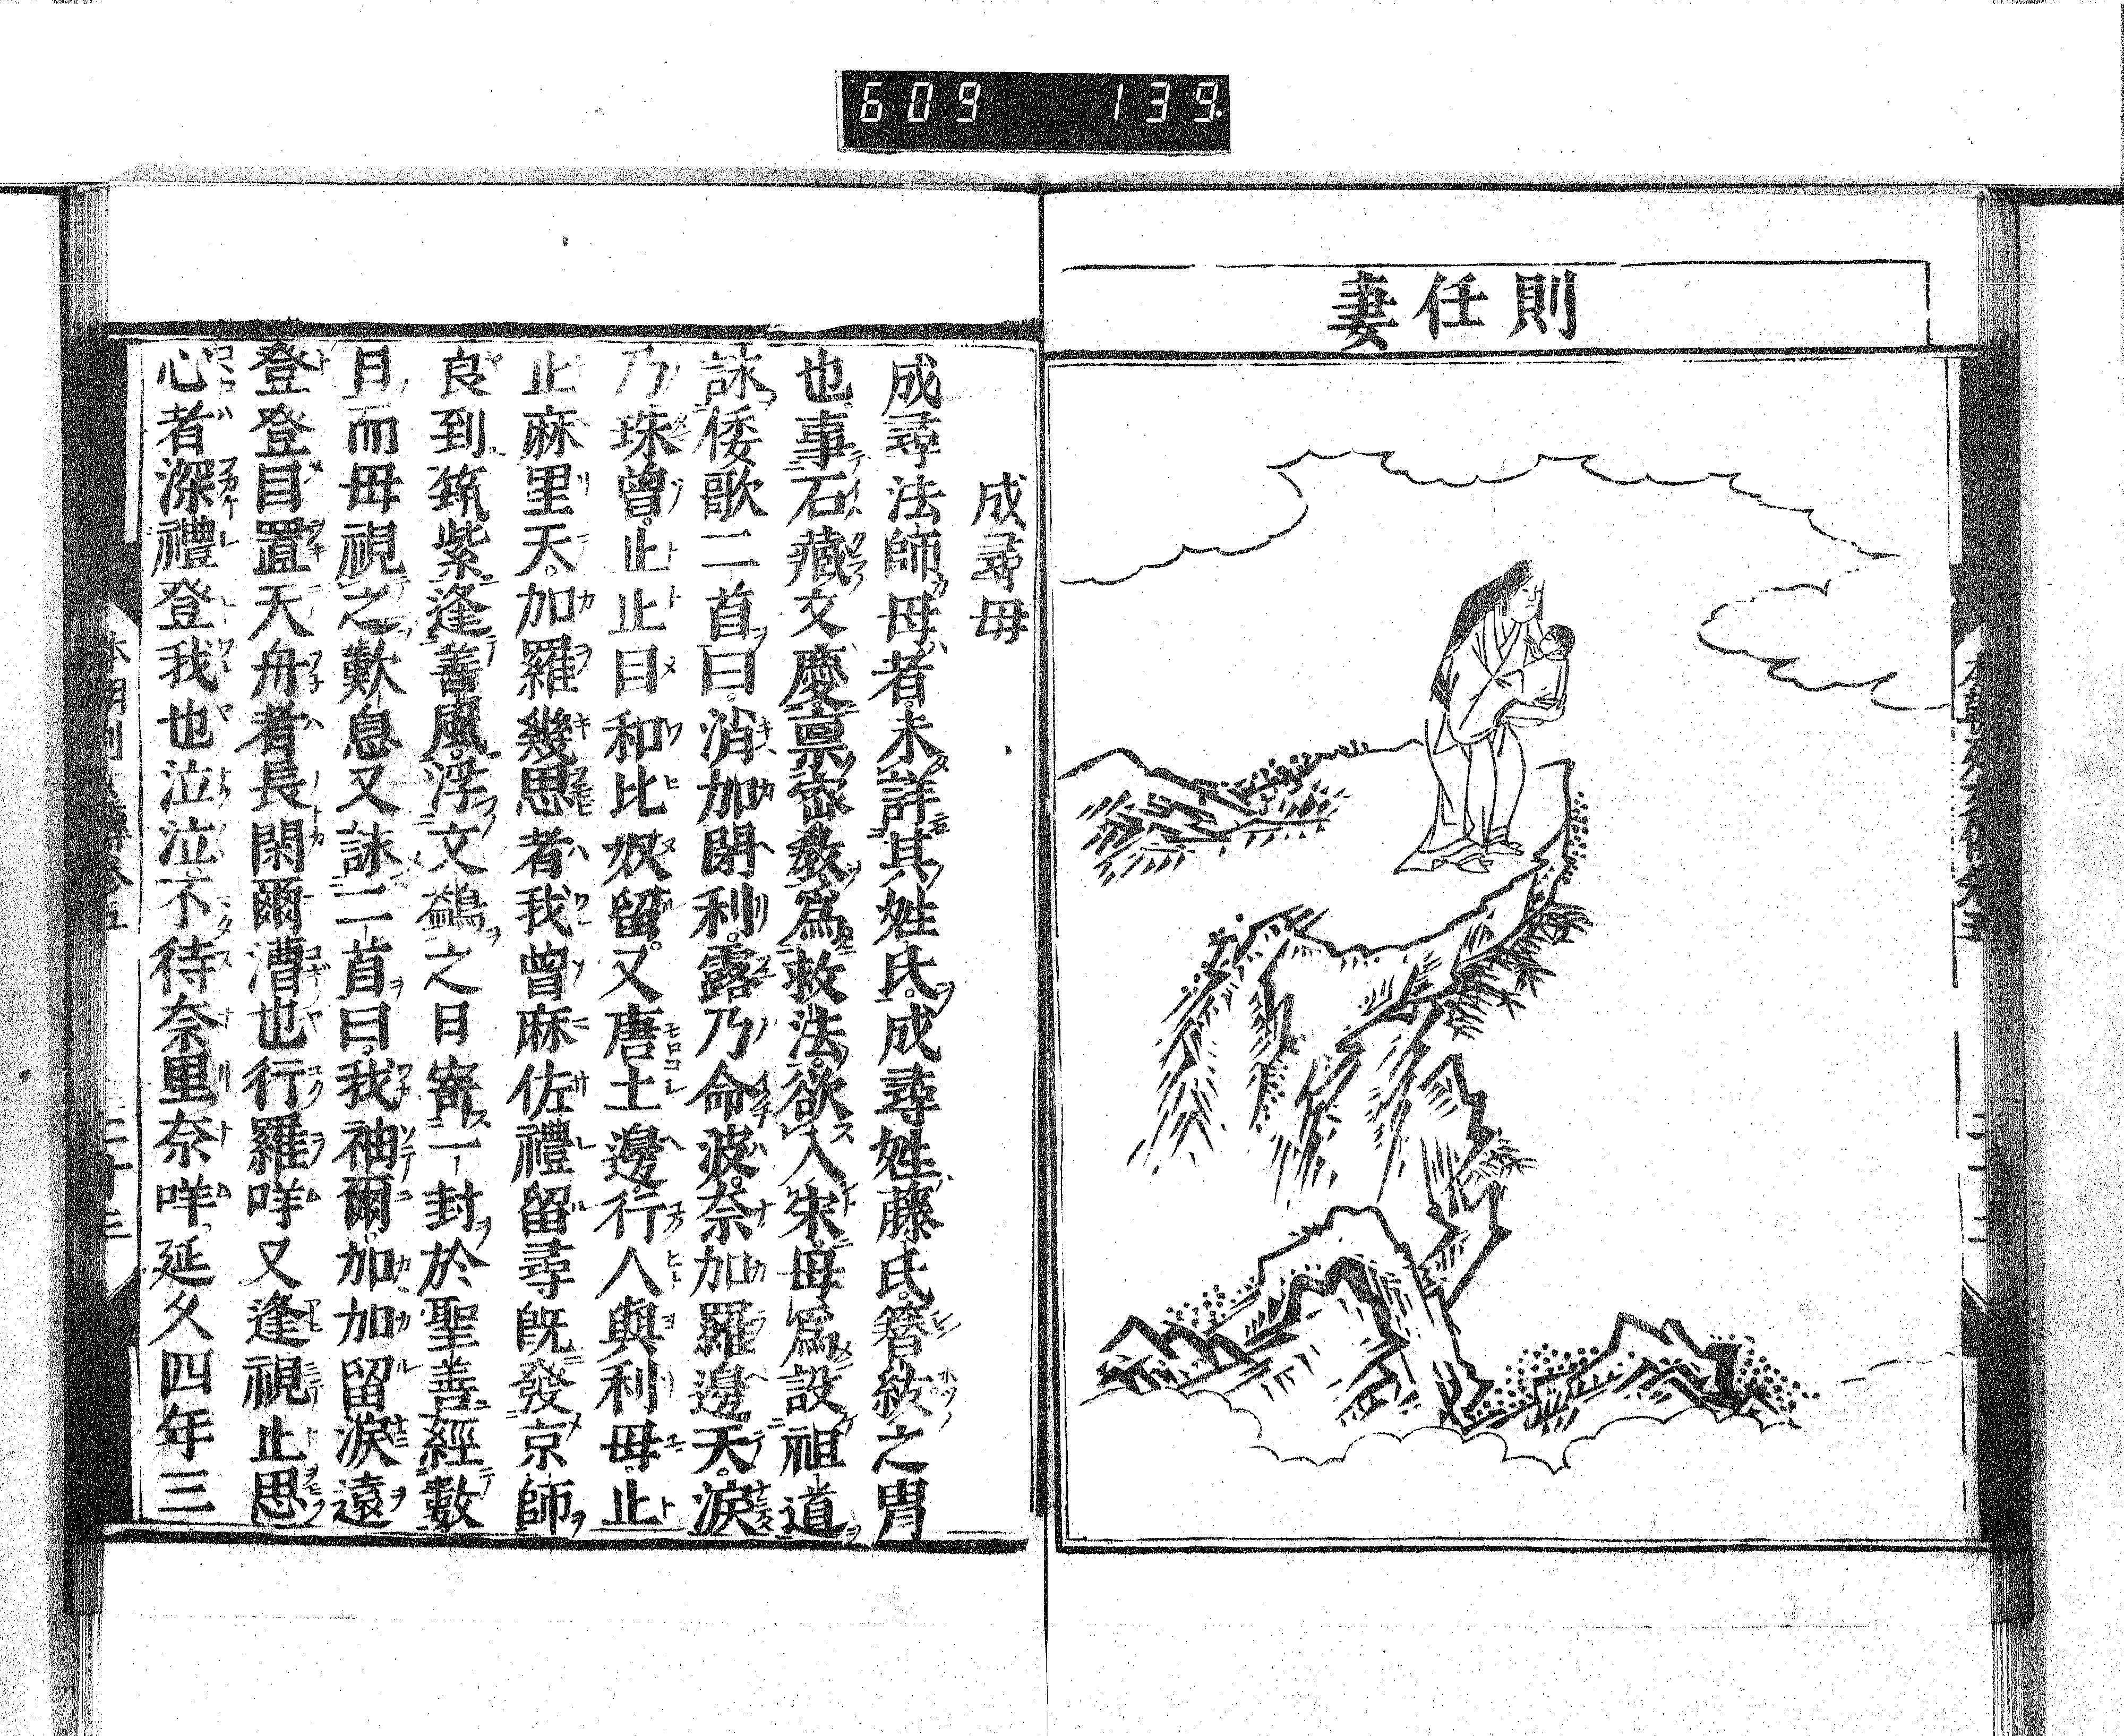 609 139
則任妻
成尋母
成尋法師母者未詳其姓氏。成尋姓藤氏。簪紱之胄
也。事石藏文慶禀密教。爲救法。欲入宋。母爲設祖道
詠倭歌二首曰。消加閉利。露乃命波。奈加羅邊天。淚
乃珠曾。止止目和比奴留。又唐土邊。行人與利母。止
止麻里天。加羅幾思者我曾麻佐禮留尋既發京師
良到筑紫逢善風。浮文鷁之日寄一封於聖善經數
月而母視之歎息又詠二首曰。我袖爾。加加留淚遠
登登目置天舟者長閑爾漕也行羅咩又逢視止思
心者深禮登我也泣泣不待奈里奈咩。延久四年三